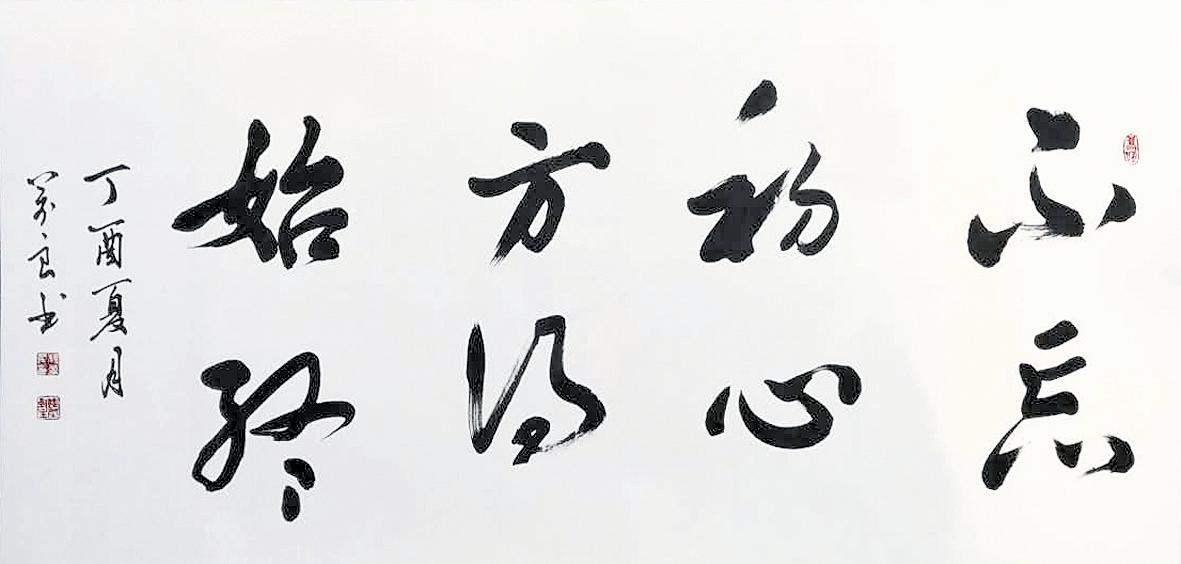 不忘
初心
方得
始终
丁酉夏月
书